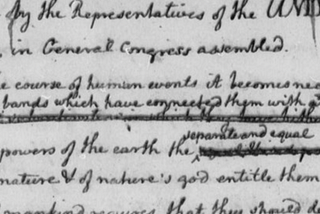 by the Representatives of the UNI
in General Congress assembled.
course of human events it becomes nec
bands which have connected them with
separate and equal
powers of the earth the
nature & of nature's god entitle them
requires that they should de